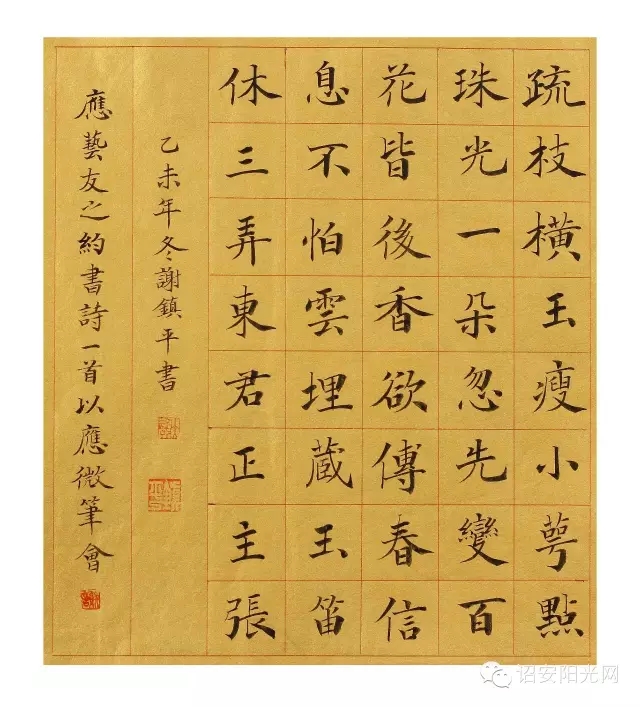 疏枝橫玉瘦小萼點
珠光一朵忽先變百
花皆後香欲傳春信
息不怕雲埋藏玉笛
休三弄東君正主張
乙未年冬謝鎮平書
應藝友之約書詩一首以應微筆會
诏安阳光网